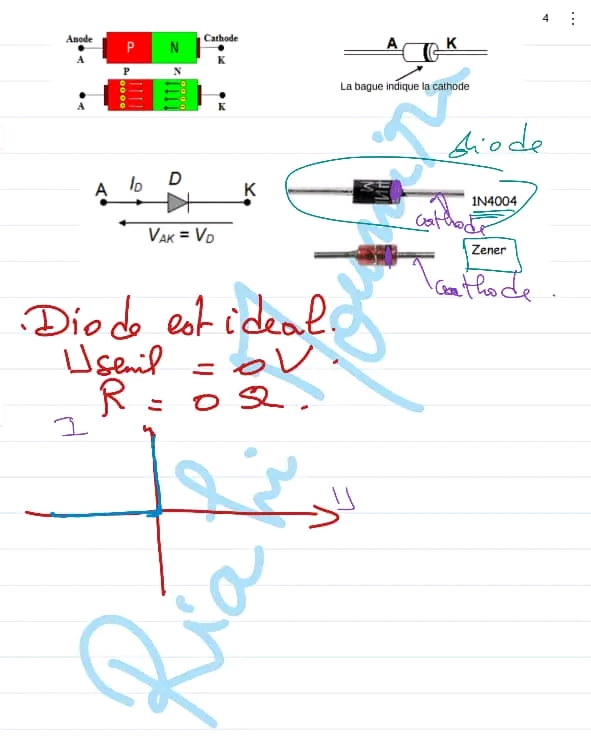 4
Anode Cathode
P N
A K
P N
A K
A K
La bague indique la cathode
diode
A I_D D K
V_AK = V_D
1N4004
cathode
Zener
cathode.
. Diode est ideal.
Useuil = 0 V.
R = 0 Ω.
I
U
Riahi Moumira